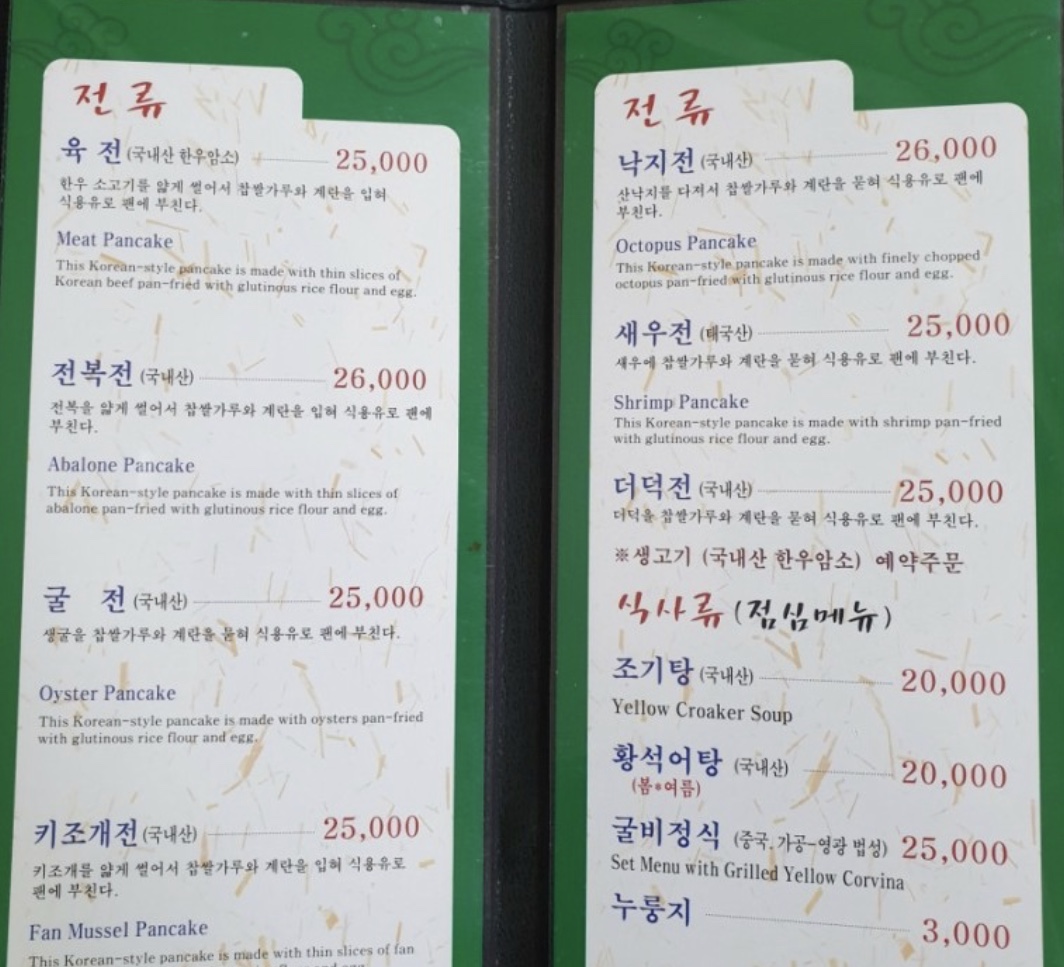 전류
육 전 (국내산 한우암소) 25,000
한우 소고기를 얇게 썰어서 찹쌀가루와 계란을 입혀
식용유로 팬에 부친다.
Meat Pancake
This Korean-style pancake is made with thin slices of
Korean beef pan-fried with glutinous rice flour and egg.
전복전 (국내산) 26,000
전복을 얇게 썰어서 찹쌀가루와 계란을 입혀 식용유로 팬에
부친다.
Abalone Pancake
This Korean-style pancake is made with thin slices of
abalone pan-fried with glutinous rice flour and egg.
굴 전 (국내산) 25,000
생굴을 찹쌀가루와 계란을 묻혀 식용유로 팬에 부친다.
Oyster Pancake
This Korean-style pancake is made with oysters pan-fried
with glutinous rice flour and egg.
키조개전 (국내산) 25,000
키조개를 얇게 썰어서 찹쌀가루와 계란을 입혀 식용유로
팬에 부친다.
Fan Mussel Pancake
This Korean-style pancake is made with thin slices of fan
전류
낙지전 (국내산) 26,000
산낙지를 다져서 찹쌀가루와 계란을 묻혀 식용유로 팬에
부친다.
Octopus Pancake
This Korean-style pancake is made with finely chopped
octopus pan-fried with glutinous rice flour and egg.
새우전 (태국산) 25,000
새우에 찹쌀가루와 계란을 묻혀 식용유로 팬에 부친다.
Shrimp Pancake
This Korean-style pancake is made with shrimp pan-fried
with glutinous rice flour and egg.
더덕전 (국내산) 25,000
더덕을 찹쌀가루와 계란을 묻혀 식용유로 팬에 부친다.
※생고기 (국내산 한우암소) 예약주문
식사류 (점심메뉴)
조기탕 (국내산) 20,000
Yellow Croaker Soup
황석어탕 (국내산) 20,000
(봄*여름)
굴비정식 (중국, 가공-영광 법성) 25,000
Set Menu with Grilled Yellow Corvina
누룽지 3,000